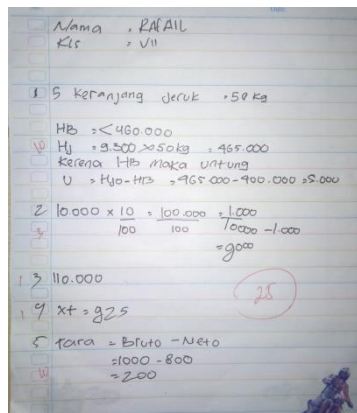 Nama : RAFAIL
Kls : VII
1 5 Keranjang Jeruk = 50 kg
HB = < 460.000
10 HJ = 9.300 x 50 kg = 465.000
Kerena HB maka untung
U = HJ0 - HB = 465 000 - 400.000 = 5.000
2 10000 x 10/100 = 100.000/100 = 1.000
3 10000 - 1.000
= 9000
1 3 110.000
25
1 4 xt = 925
5 tara = Bruto - Neto
= 1000 - 800
10 = 200